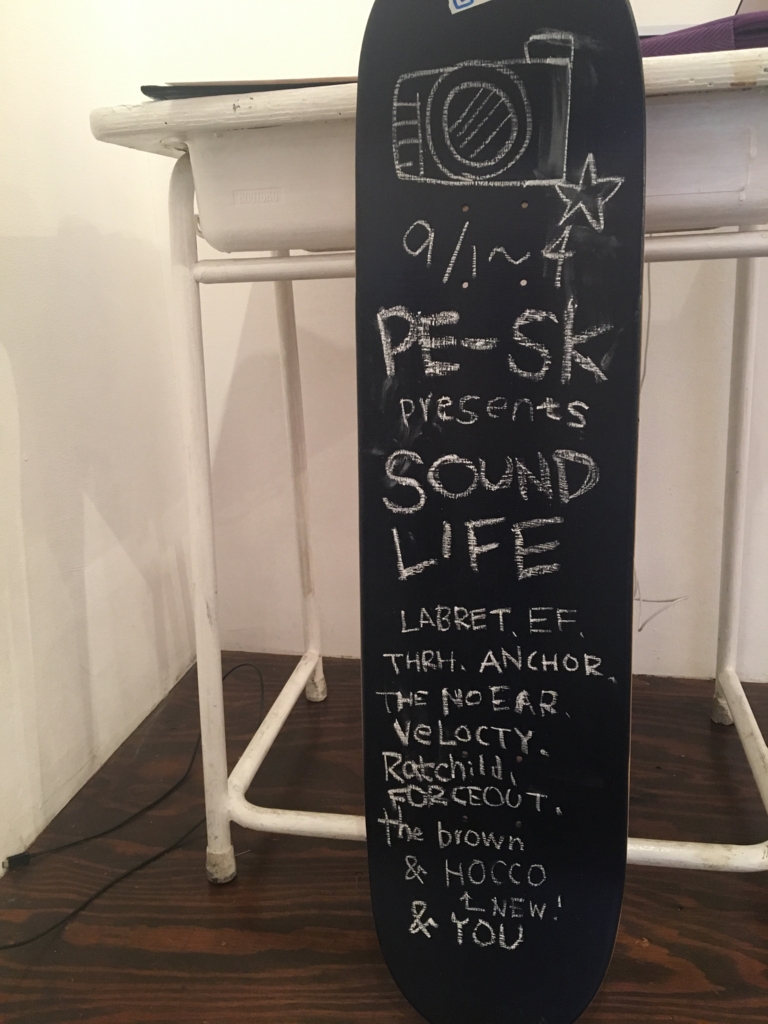 9/1~4
PE-SK
presents
SOUND
LIFE
LABRET, EF,
THRH, ANCHOR,
THE NO EAR,
VeLOCTY,
Ratchild,
FORCEOUT,
the brown
& HOCCO
↑NEW!
& YOU